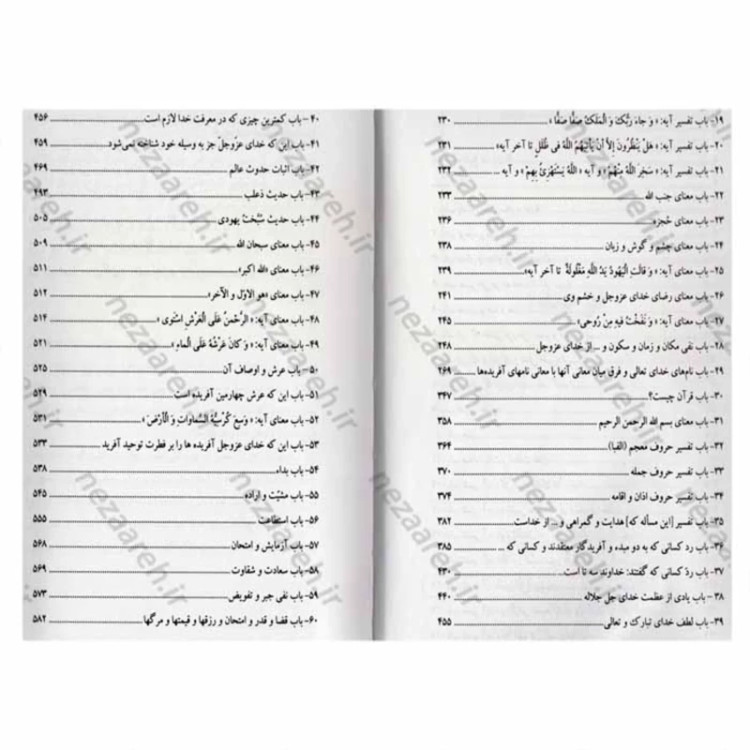 ۱۹- باب تفسیر آیه: « وَ جاءَ رَبُّكَ وَ الْمَلَكُ صَفًّا صَفًّا » ۲۳۰
۲۰- باب تفسیر آیه: « هَلْ يَنْظُرُونَ إِلاَّ أَنْ يَأْتِيَهُمُ اللَّهُ فِي ظُلَلٍ تا آخر آیه» ۲۳۱
۲۱- باب تفسیر آیه: « سَخِرَ اللَّهُ مِنْهُمْ» و آیه « اللَّهُ يَسْتَهْزِئُ بِهِمْ» و آیه ... ۲۳۲
۲۲- باب معنای جنب الله ۲۳۳
۲۳- باب معنای حُجزه ۲۳۶
۲۴- باب معنای چشم و گوش و زبان ۲۳۸
۲۵- باب معنای آیه: « وَ قالَتِ الْيَهُودُ يَدُ اللَّهِ مَغْلُولَةٌ تا آخر آیه» ۲۳۹
۲۶- باب معنای رضای خدای عزوجل و خشم وی ۲۴۱
۲۷- باب معنای آیه: « وَ نَفَخْتُ فِيهِ مِنْ رُوحِي» ۲۴۵
۲۸- باب نفی مکان و زمان و سکون و ... از خدای عزوجل ۲۴۸
۲۹- باب نام‌های خدای تعالی و فرق میان معانی آنها با معانی نامهای آفریده‌ها ۲۶۹
۳۰- باب قرآن چیست؟ ۳۴۷
۳۱- باب معنای بسم الله الرحمن الرحیم ۳۵۸
۳۲- باب تفسیر حروف معجم (الفبا) ۳۶۴
۳۳- باب تفسیر حروف جمله ۳۷۰
۳۴- باب تفسیر حروف اذان و اقامه ۳۷۴
۳۵- باب تفسیر [این مسأله که] هدایت و گمراهی و ... از خداست ۳۸۲
۳۶- باب ردّ کسانی که به دو مبدء و آفریدگار معتقدند و کسانی که ... ۳۸۵
۳۷- باب ردّ کسانی که گفتند: خداوند سه تا است ۴۳۰
۳۸- باب یادی از عظمت خدای جل جلاله ۴۴۰
۳۹- باب لطف خدای تبارک و تعالی ۴۵۵
۴۰- باب کمترین چیزی که در معرفت خدا لازم است ۴۵۶
۴۱- باب این که خدای عزّوجلّ جز به وسیله خود شناخته نمی‌شود ۴۵۹
۴۲- باب اثبات حدوث عالم ۴۶۹
۴۳- باب حدیث ذعلب ۴۹۳
۴۴- باب حدیث سُبُّخت یهودی ۵۰۵
۴۵- باب معنای سبحان الله ۵۰۹
۴۶- باب معنای «الله اکبر» ۵۱۱
۴۷- باب معنای «هو الاوّل و الآخر» ۵۱۲
۴۸- باب معنای آیه: « الرَّحْمنُ عَلَى الْعَرْشِ اسْتَوى » ۵۱۴
۴۹- باب معنای آیه: « وَ كانَ عَرْشُهُ عَلَى الْماءِ » ۵۲۱
۵۰- باب عرش و اوصاف آن ۵۲۵
۵۱- باب این که عرش چهارمین آفریده است ۵۲۹
۵۲- باب معنای آیه: « وَسِعَ كُرْسِيُّهُ السَّماواتِ وَ الْأَرْضَ » ۵۳۱
۵۳- باب این که خدای عزوجل آفریده ها را بر فطرت توحید آفرید ۵۳۳
۵۴- باب بداء ۵۳۸
۵۵- باب مشیّت و اراده ۵۴۵
۵۶- باب استطاعت ۵۵۵
۵۷- باب آزمایش و امتحان ۵۶۸
۵۸- باب سعادت و شقاوت ۵۶۹
۵۹- باب نفی جبر و تفویض ۵۷۳
۶۰- باب قضا و قدر و امتحان و رزقها و قیمتها و مرگها ۵۸۲
nezaareh.ir